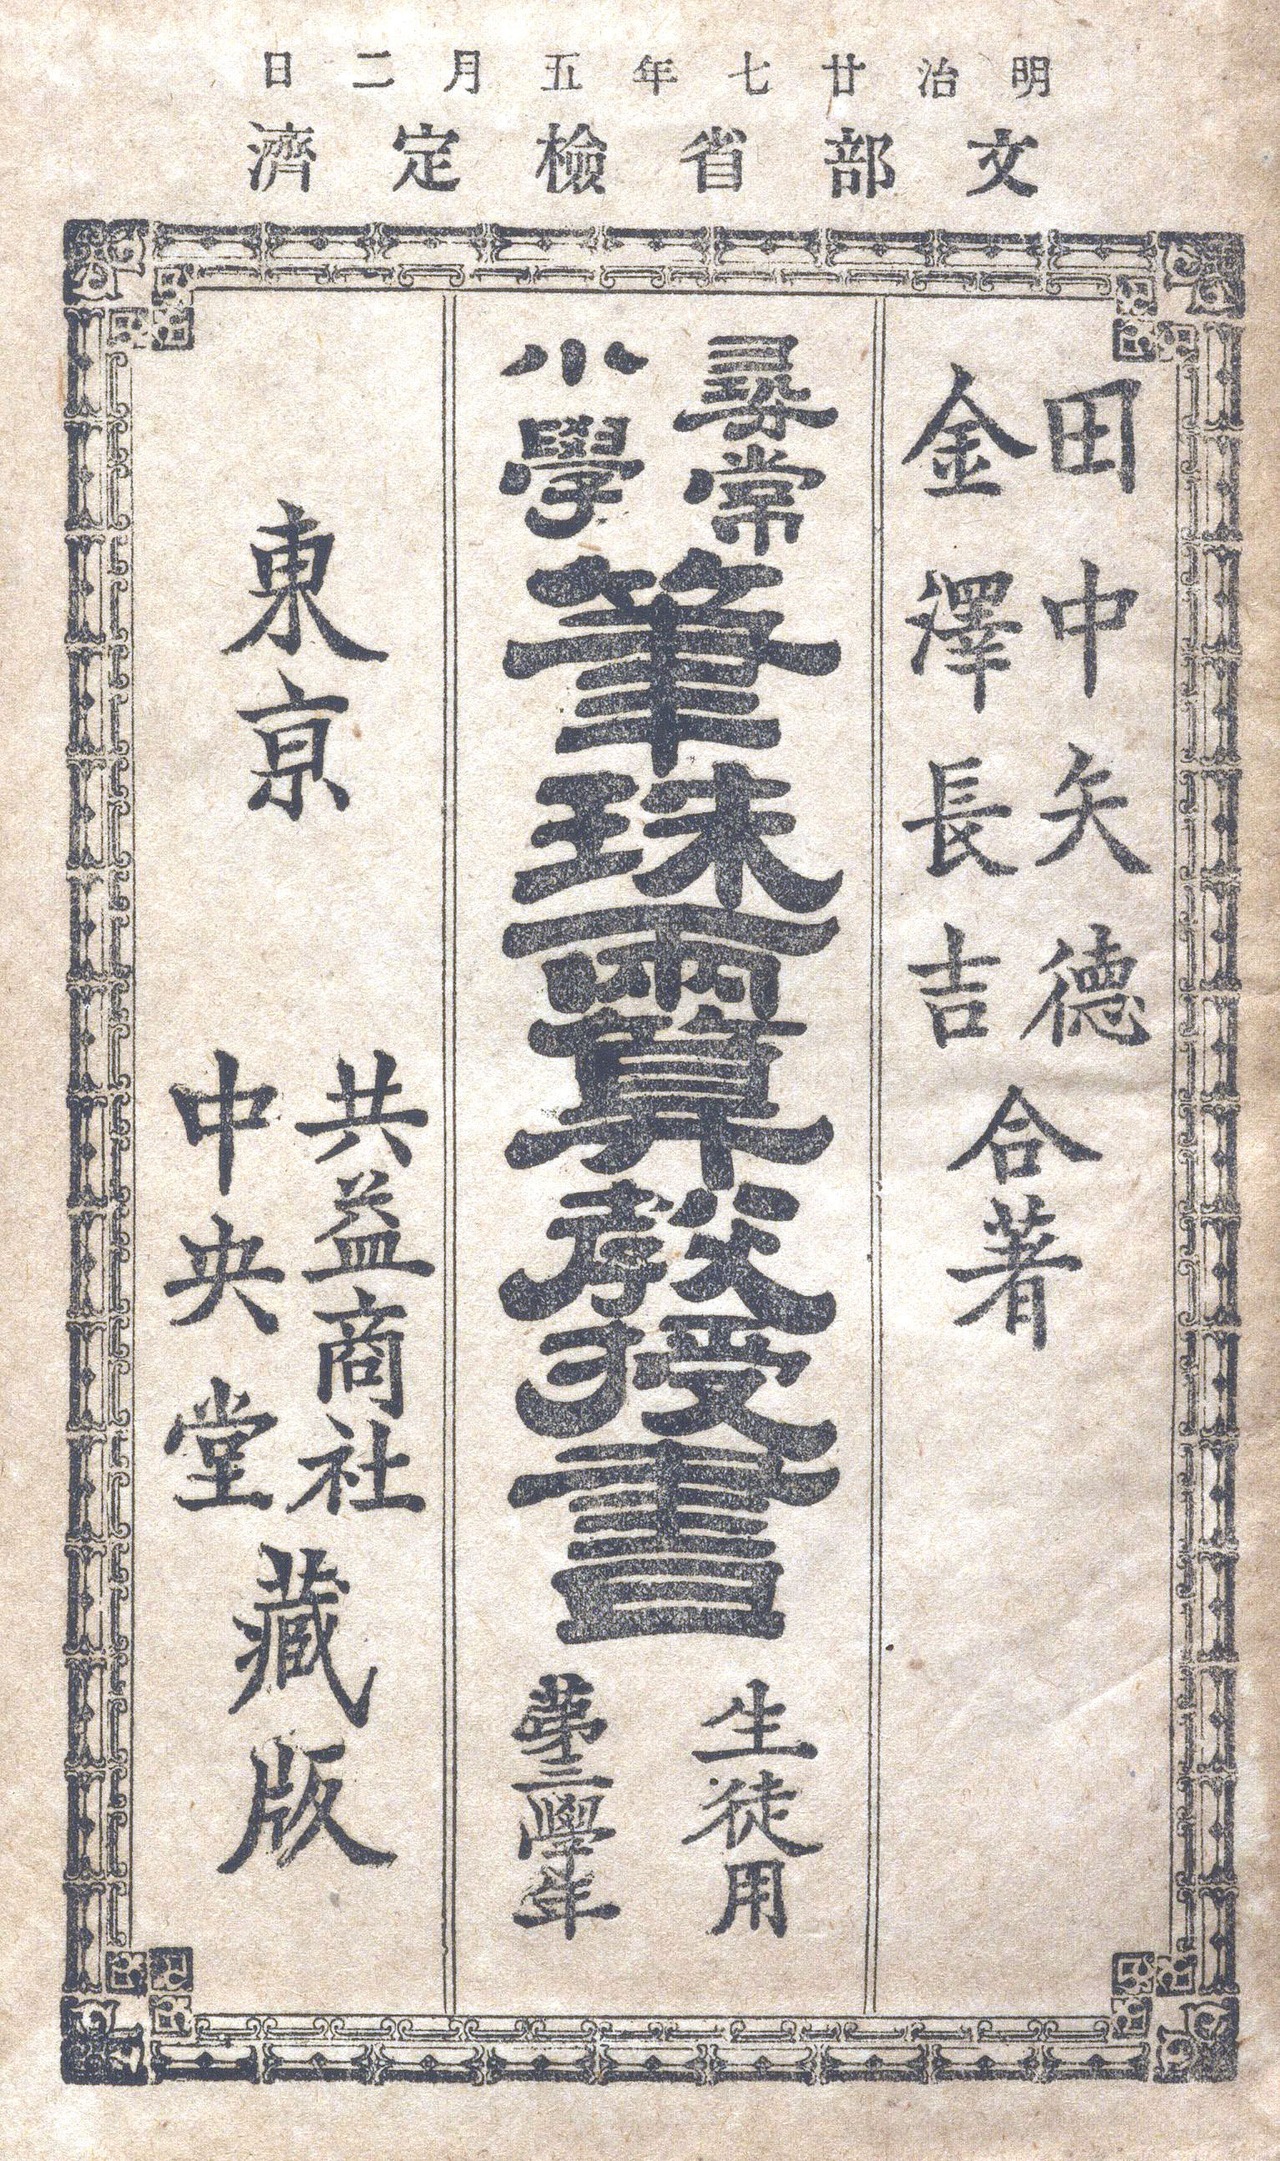 明治廿七年五月二日
文部省檢定濟
田中矢德
金澤長吉
合著
尋常
小學
筆珠兩算教授書
生徒用
第三學年
東京
共益商社
中央堂
藏版